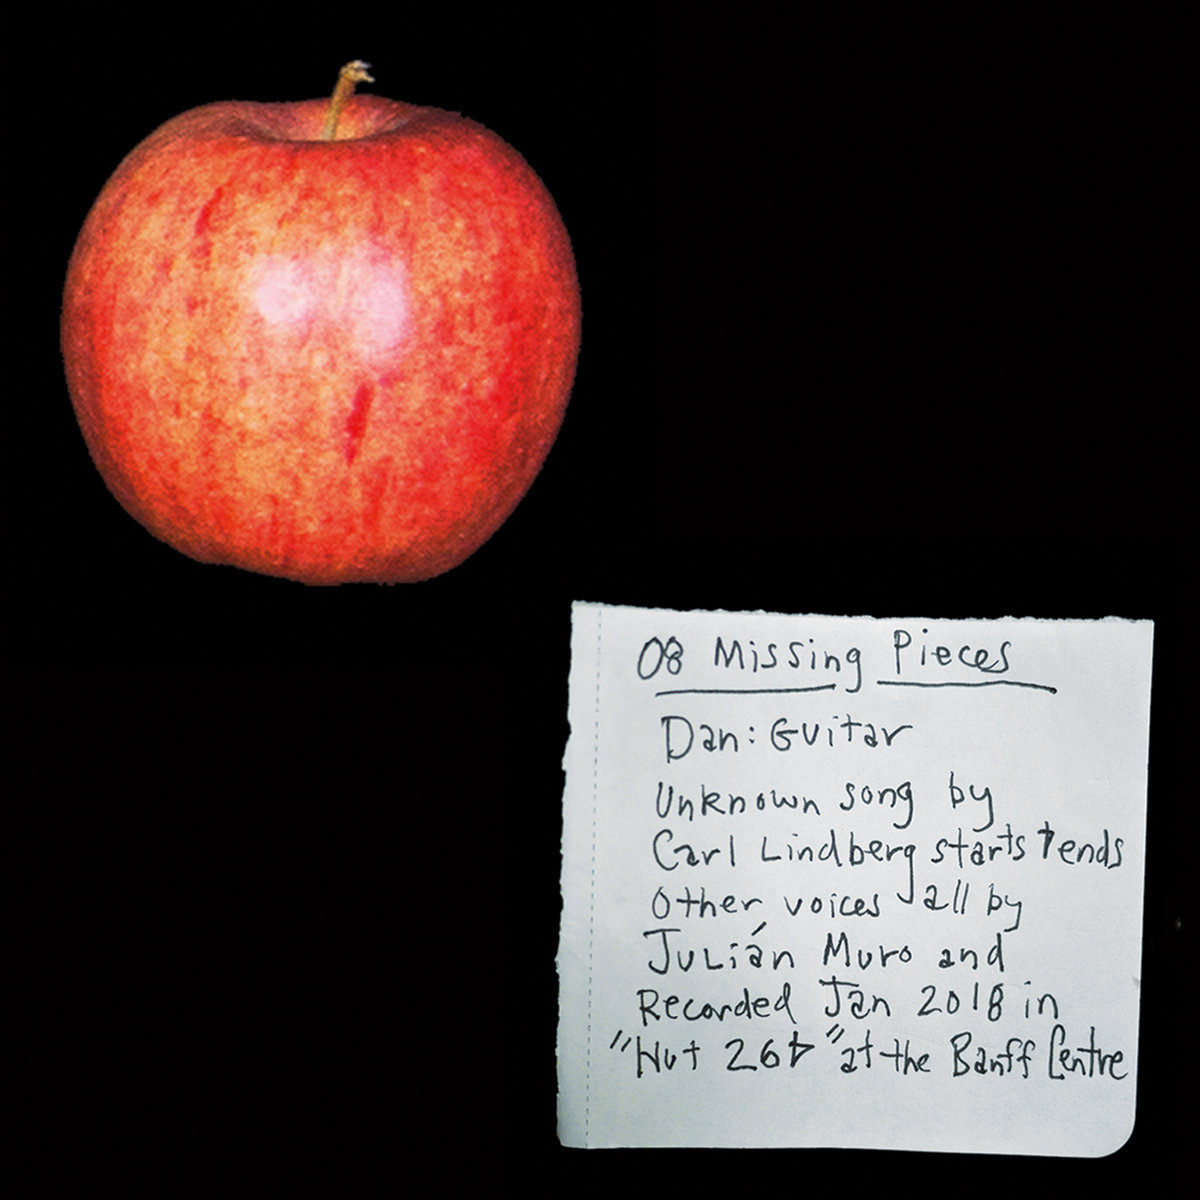 08 Missing Pieces
Dan: Guitar
Unknown song by
Carl Lindberg starts + ends
Other voices all by
Julián Muro and
Recorded Jan 2018 in
"Hut at the Banff Centre